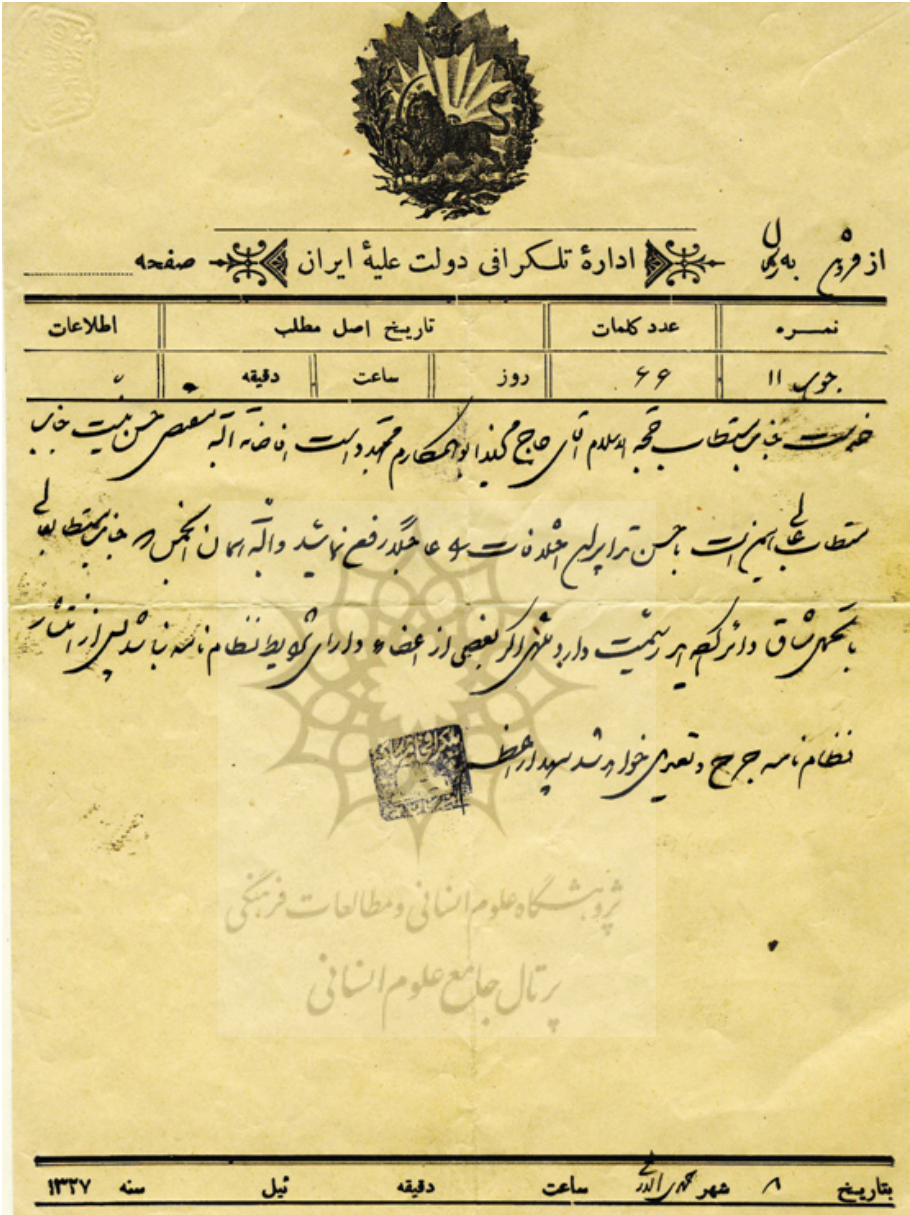 از قزوین به
ادارهٔ تلگرافی دولت علیهٔ ایران
صفحه
نمره عدد کلمات تاریخ اصل مطلب اطلاعات
۱۱ ۶۶ روز ساعت دقیقه
خدمت جناب مستطاب حجة الاسلام آقای حاج ابوالمکارم مجتهد دامت افاضاته البته مقتضی حسن نیت جناب
مستطاب عالی این است با حسن تدابیر این اختلافات را عاجلا رفع نمائید و البته همان انجمن را جناب مستطاب عالی
با دائر کرده‌اید رسمیت دارد منتهی اگر بعضی از اعضاء دارای شرایط نظام نامه نباشد پس از انتشار
نظام نامه جرح و تعدیل خواهد شد سپهدار اعظم
پژوهشگاه علوم انسانی و مطالعات فرهنگی
پرتال جامع علوم انسانی
بتاریخ ۸ شهر جمادی الثانی ساعت دقیقه ئیل سنه ۱۳۲۷